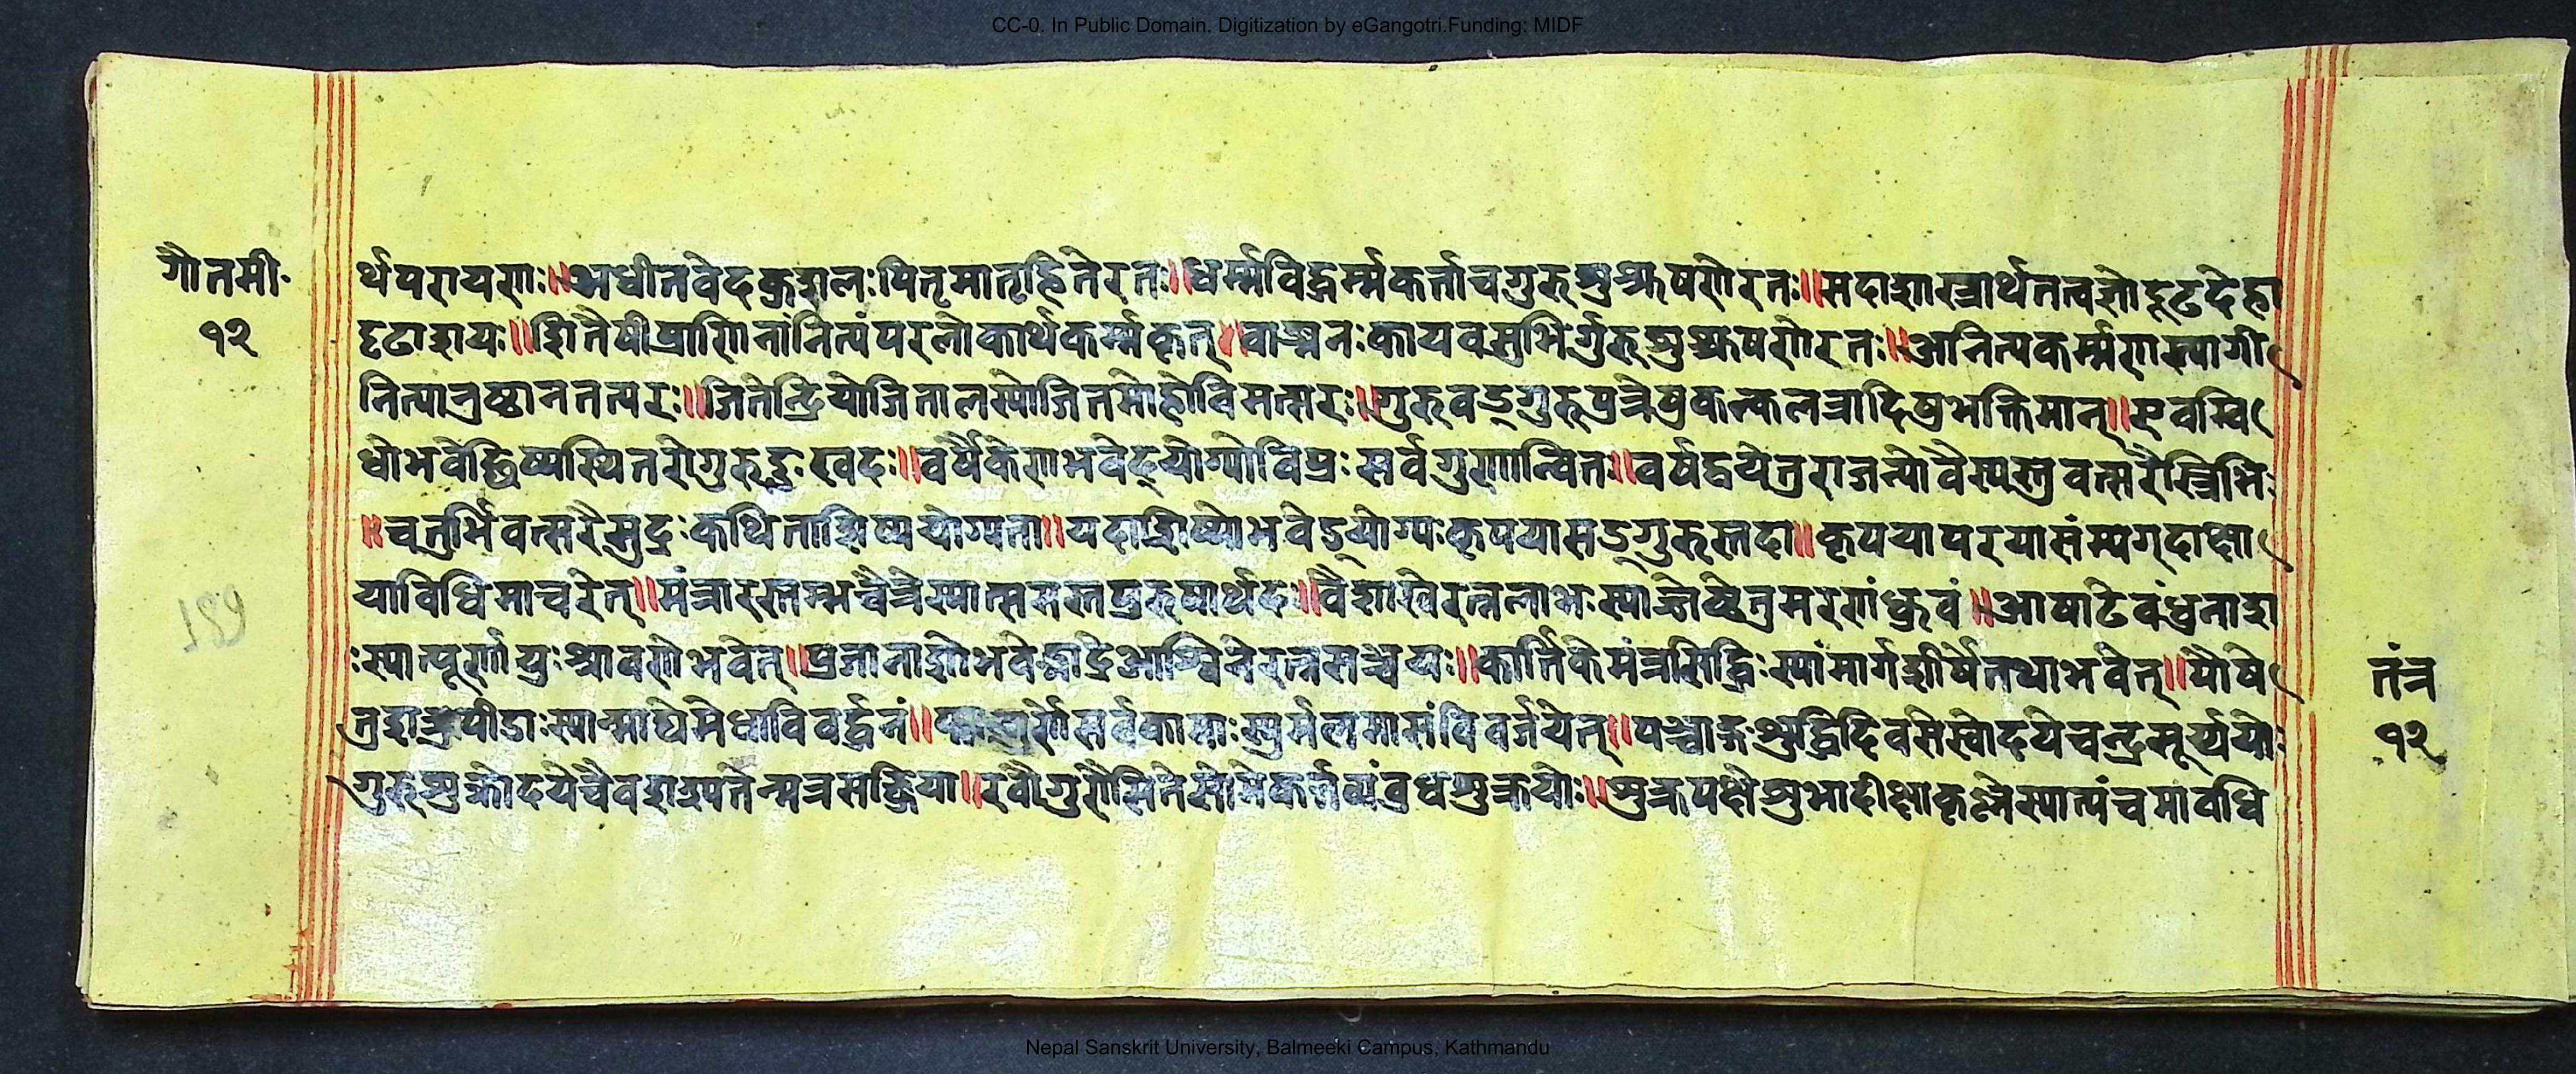 CC-0. In Public Domain. Digitization by eGangotri.Funding: MIDF
गौतमी॰
१२
र्थपरायणः॥अधीतवेदकुशलःपितृमातृहितेरतः॥धर्म्मविद्धर्म्मकर्त्ताचगुरुशुश्रूषणेरतः॥सदाशास्त्रार्थतत्वज्ञोदृढदेहो
दृढाशयः॥हितैषीप्राणिनांनित्यंपरलोकार्थकर्म्मकृत्॥वाङ्मनःकायवसुभिर्गुरुशुश्रूषणेरतः॥अनित्यकर्म्मणस्त्यागी
नित्यानुष्ठानतत्परः॥जितेन्द्रियोजितालस्योजितमोहोविमत्सरः॥गुरुवद्गुरुपुत्रेषु कलत्रादिषुभक्तिमान्॥एवम्वि
धोभवेच्छिष्यस्त्वितरोगुरुदुःखदः॥वर्षैकेणभवेद्योग्योविप्रःसर्वगुणान्वितः॥वर्षद्वयेतुराजन्योवैश्यस्तुवत्सरैस्त्रिभिः
॥चतुर्भिवत्सरैसुद्रःकथिताशिष्ययोग्यता॥यदाशिष्योभवेद्योग्यःकृपयासद्गुरुस्तदा॥कृपयापरयासंम्यग्दीक्षा
याविधिमाचरेत्॥मंत्रारस्तम्भचैत्रेस्यात्समस्तपुरुषार्थदः॥वैशाखेरत्नलाभःस्याज्जेष्ठेतुमरणंध्रुवं॥आषाढेवंधुनाश
ःस्यात्पूर्णायुःश्रावणेभवेत्॥प्रजानाशोभवेद्भाद्रेआश्विनेरत्नसञ्चयः॥कार्त्तिकेमंत्रसिद्धिःस्यांमार्गशीर्षेतथाभवेत्॥पौषे
तुशत्रुपीडाःस्यान्माघेमेधाविवर्द्धनं॥फाल्गुणेसर्वकामाःस्युर्मलमासंविवर्जयेत्॥पञ्चाङ्गशुद्धिदिवसेस्वोदयेचन्द्रसूर्य्ययोः
गुरुशुक्रोदयेचैवशस्यतेन्मत्रसत्क्रिया॥रवौगुरौसितेसोमेकर्त्तव्यंबुधशुक्रयोः॥शुक्लपक्षेशुभादीक्षाकृष्णेस्यात्पंचमावधि
तंत्र
१२
Nepal Sanskrit University, Balmeeki Campus, Kathmandu